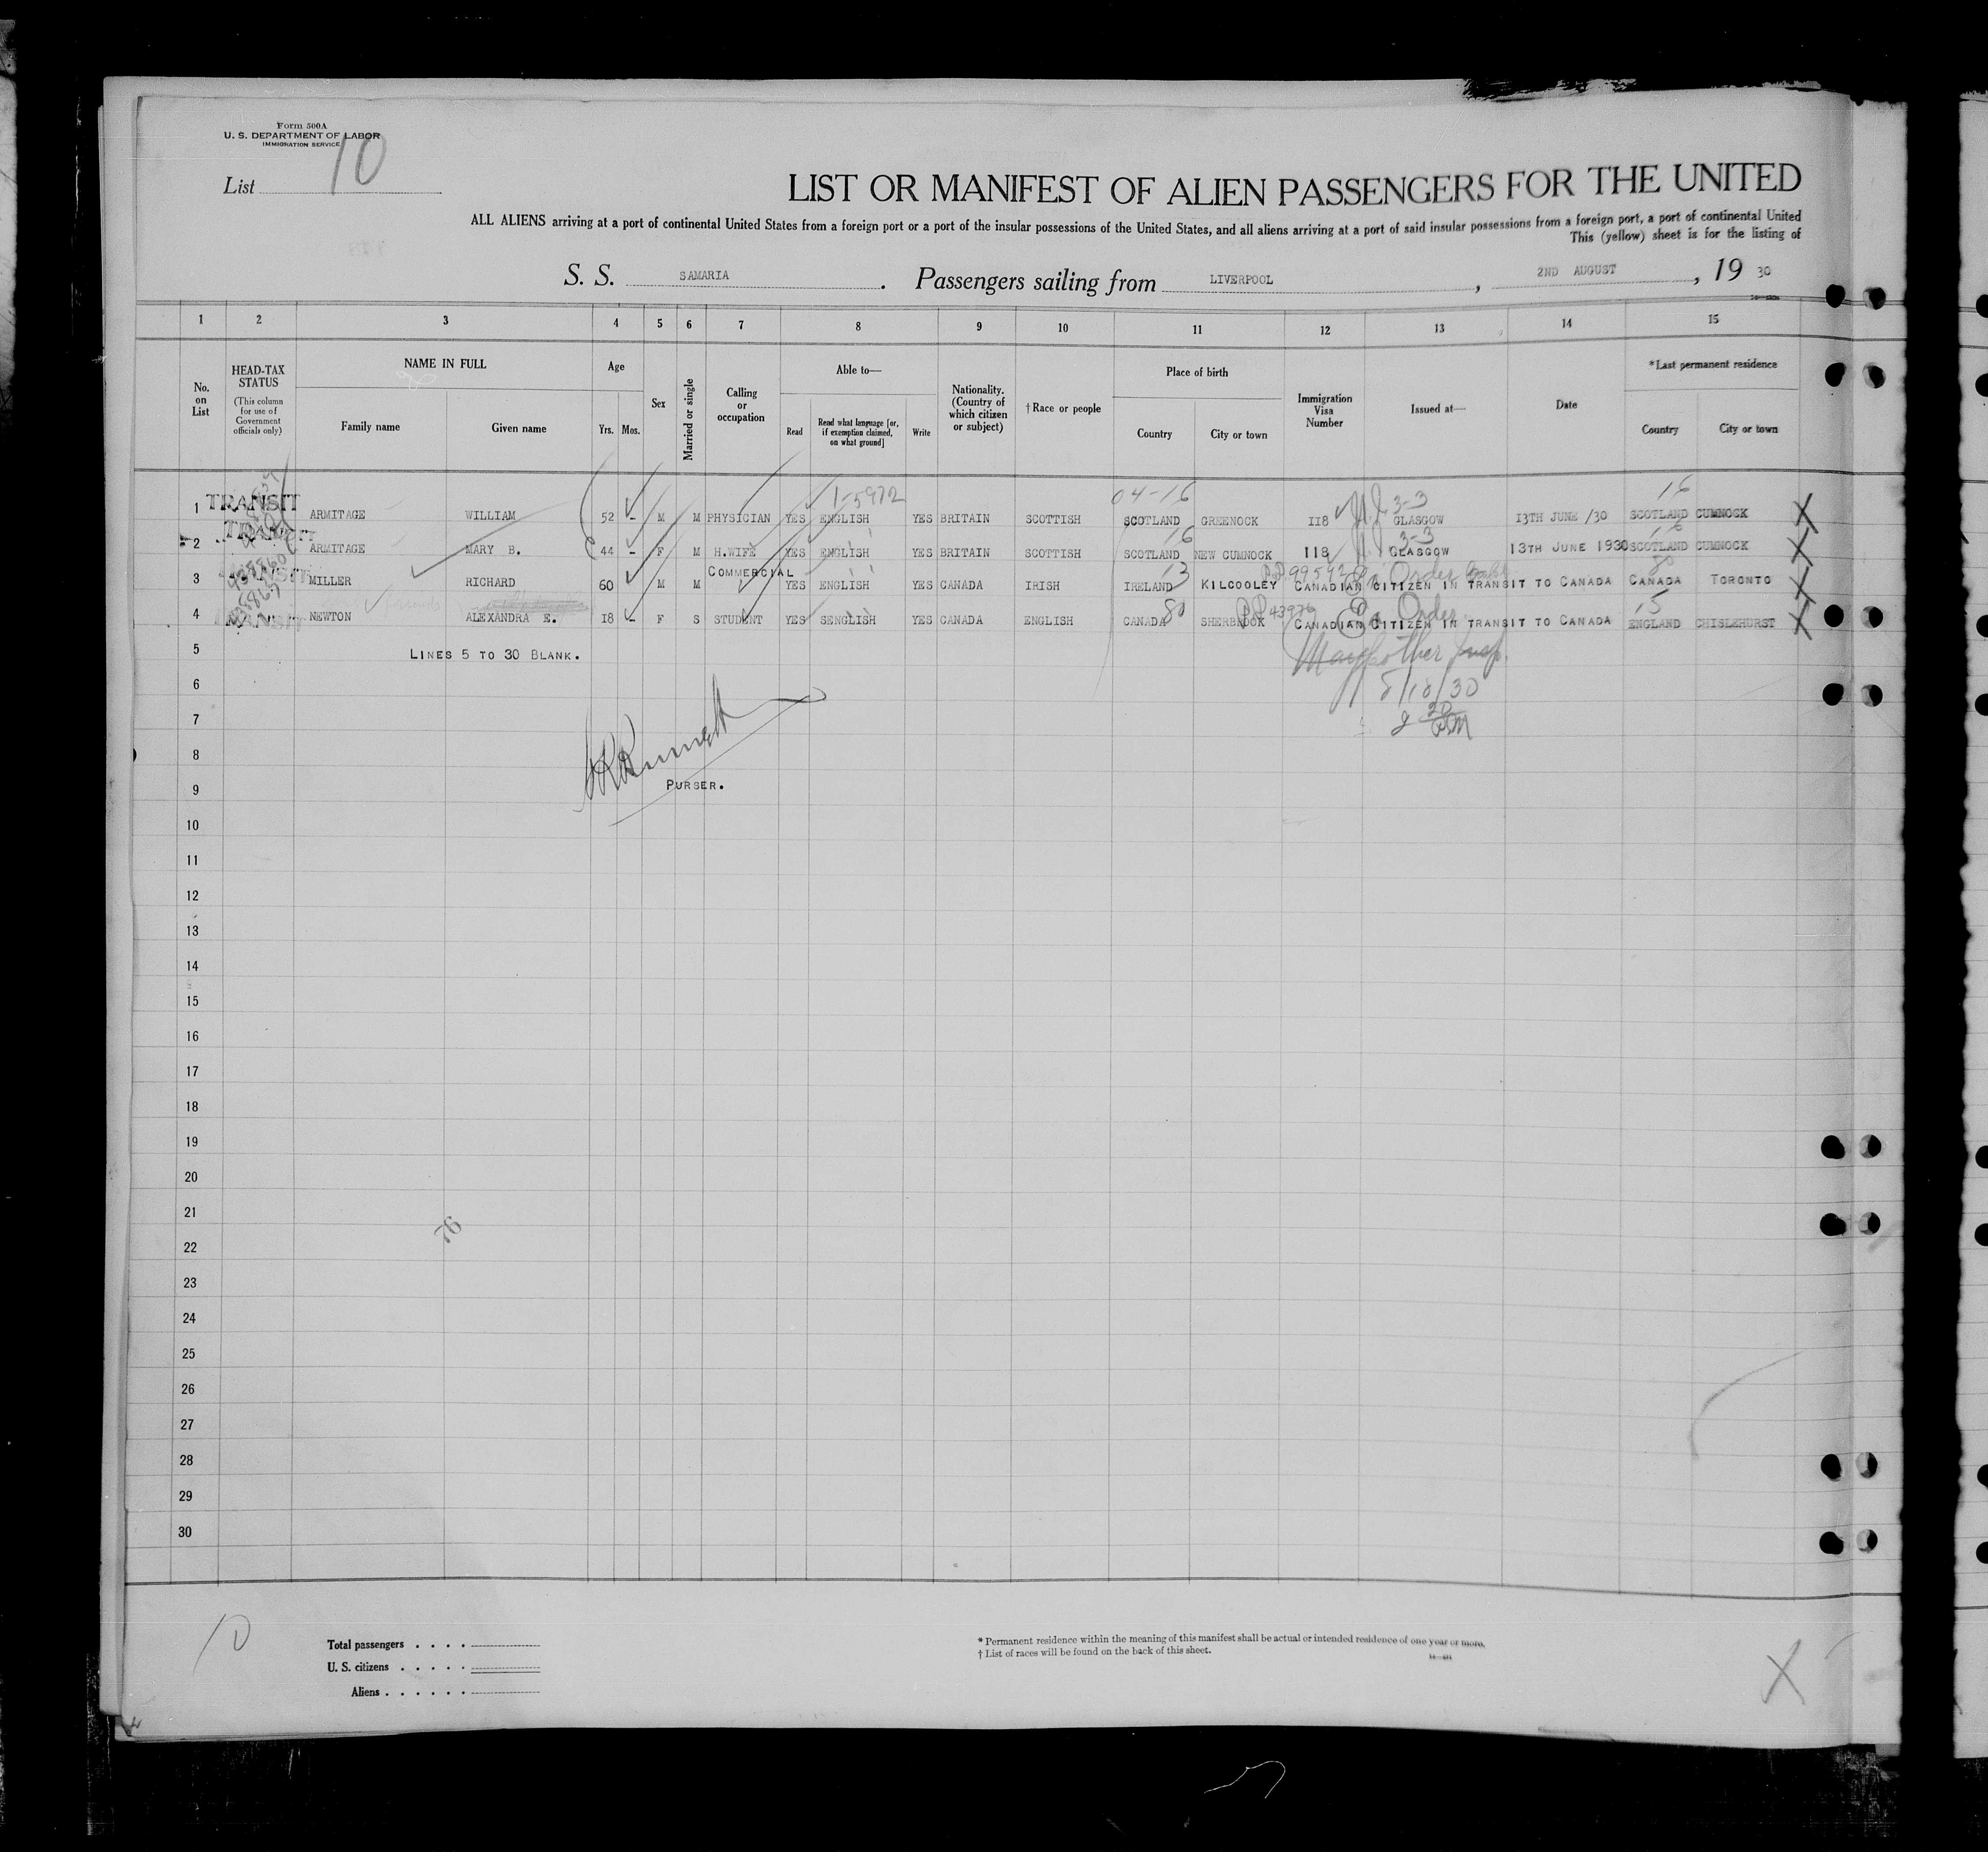 Form 500A
U. S. DEPARTMENT OF LABOR
IMMIGRATION SERVICE
List 10
LIST OR MANIFEST OF ALIEN PASSENGERS FOR THE UNITED
ALL ALIENS arriving at a port of continental United States from a foreign port or a port of the insular possessions of the United States, and all aliens arriving at a port of said insular possessions from a foreign port, a port of continental United
This (yellow) sheet is for the listing of
S. S. SAMARIA . Passengers sailing from LIVERPOOL , 2ND AUGUST , 19 30
1 2 3 4 5 6 7 8 9 10 11 12 13 14 15
No. on List
HEAD-TAX STATUS
(This column for use of Government officials only)
NAME IN FULL
Family name Given name
Age
Yrs. Mos.
Sex
Married or single
Calling or occupation
Able to—
Read Read what language [or, if exemption claimed, on what ground] Write
Nationality. (Country of which citizen or subject)
† Race or people
Place of birth
Country City or town
Immigration Visa Number
Issued at—
Date
*Last permanent residence
Country City or town
1-5972 04-16 3-3 16
1 TRANSIT ARMITAGE WILLIAM 52 - M M PHYSICIAN YES ENGLISH YES BRITAIN SCOTTISH SCOTLAND GREENOCK 118 GLASGOW 13TH JUNE /30 SCOTLAND CUMNOCK X
16 3-3 16
2 TRANSIT ARMITAGE MARY B. 44 - F M H.WIFE YES ENGLISH YES BRITAIN SCOTTISH SCOTLAND NEW CUMNOCK 118 GLASGOW 13TH JUNE 1930 SCOTLAND CUMNOCK X
13 80
3 TRANSIT MILLER RICHARD 60 M M COMMERCIAL YES ENGLISH YES CANADA IRISH IRELAND KILCOOLEY CANADIAN CITIZEN IN TRANSIT TO CANADA CANADA TORONTO X
80 PP 43976 Ex Order 15
4 TRANSIT NEWTON ALEXANDRA E. 18 - F S STUDENT YES SENGLISH YES CANADA ENGLISH CANADA SHERBROOK CANADIAN CITIZEN IN TRANSIT TO CANADA ENGLAND CHISLEHURST X
5 LINES 5 TO 30 BLANK.
6 8/18/30
7
8
9 PURSER.
10
11
12
13
14
15
16
17
18
19
20
21
76
22
23
24
25
26
27
28
29
30
10
Total passengers . . . .
U. S. citizens . . . . .
Aliens . . . . . .
* Permanent residence within the meaning of this manifest shall be actual or intended residence of one year or more.
† List of races will be found on the back of this sheet.
X